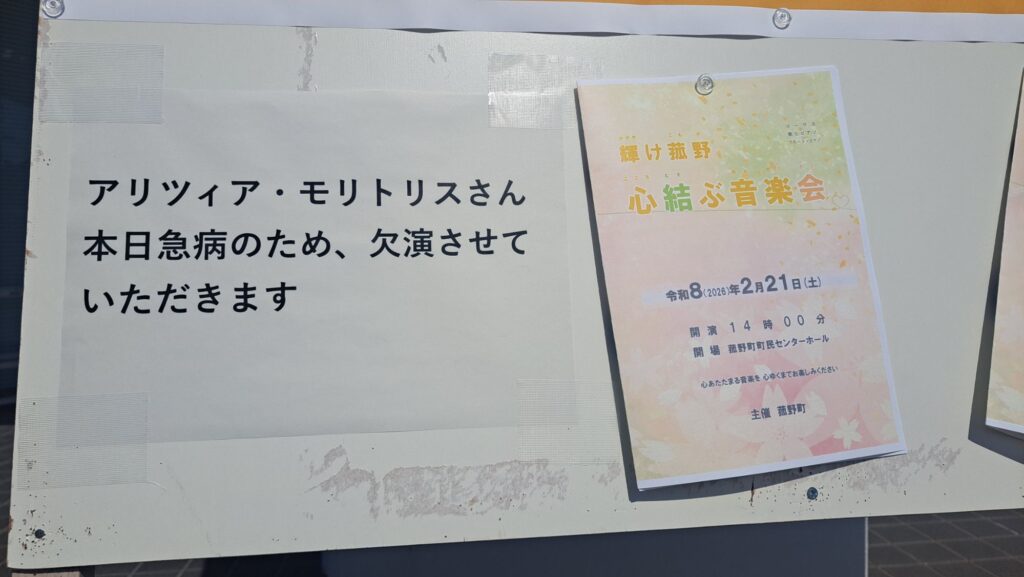 アリツィア・モリトリスさん
本日急病のため、欠演させて
いただきます
輝け菰野
心結ぶ音楽会
令和8(2026)年2月21日(土)
開演 14時00分
開場 菰野町町民センターホール
心あたたまる音楽を 心ゆくまでお楽しみください
主催 菰野町